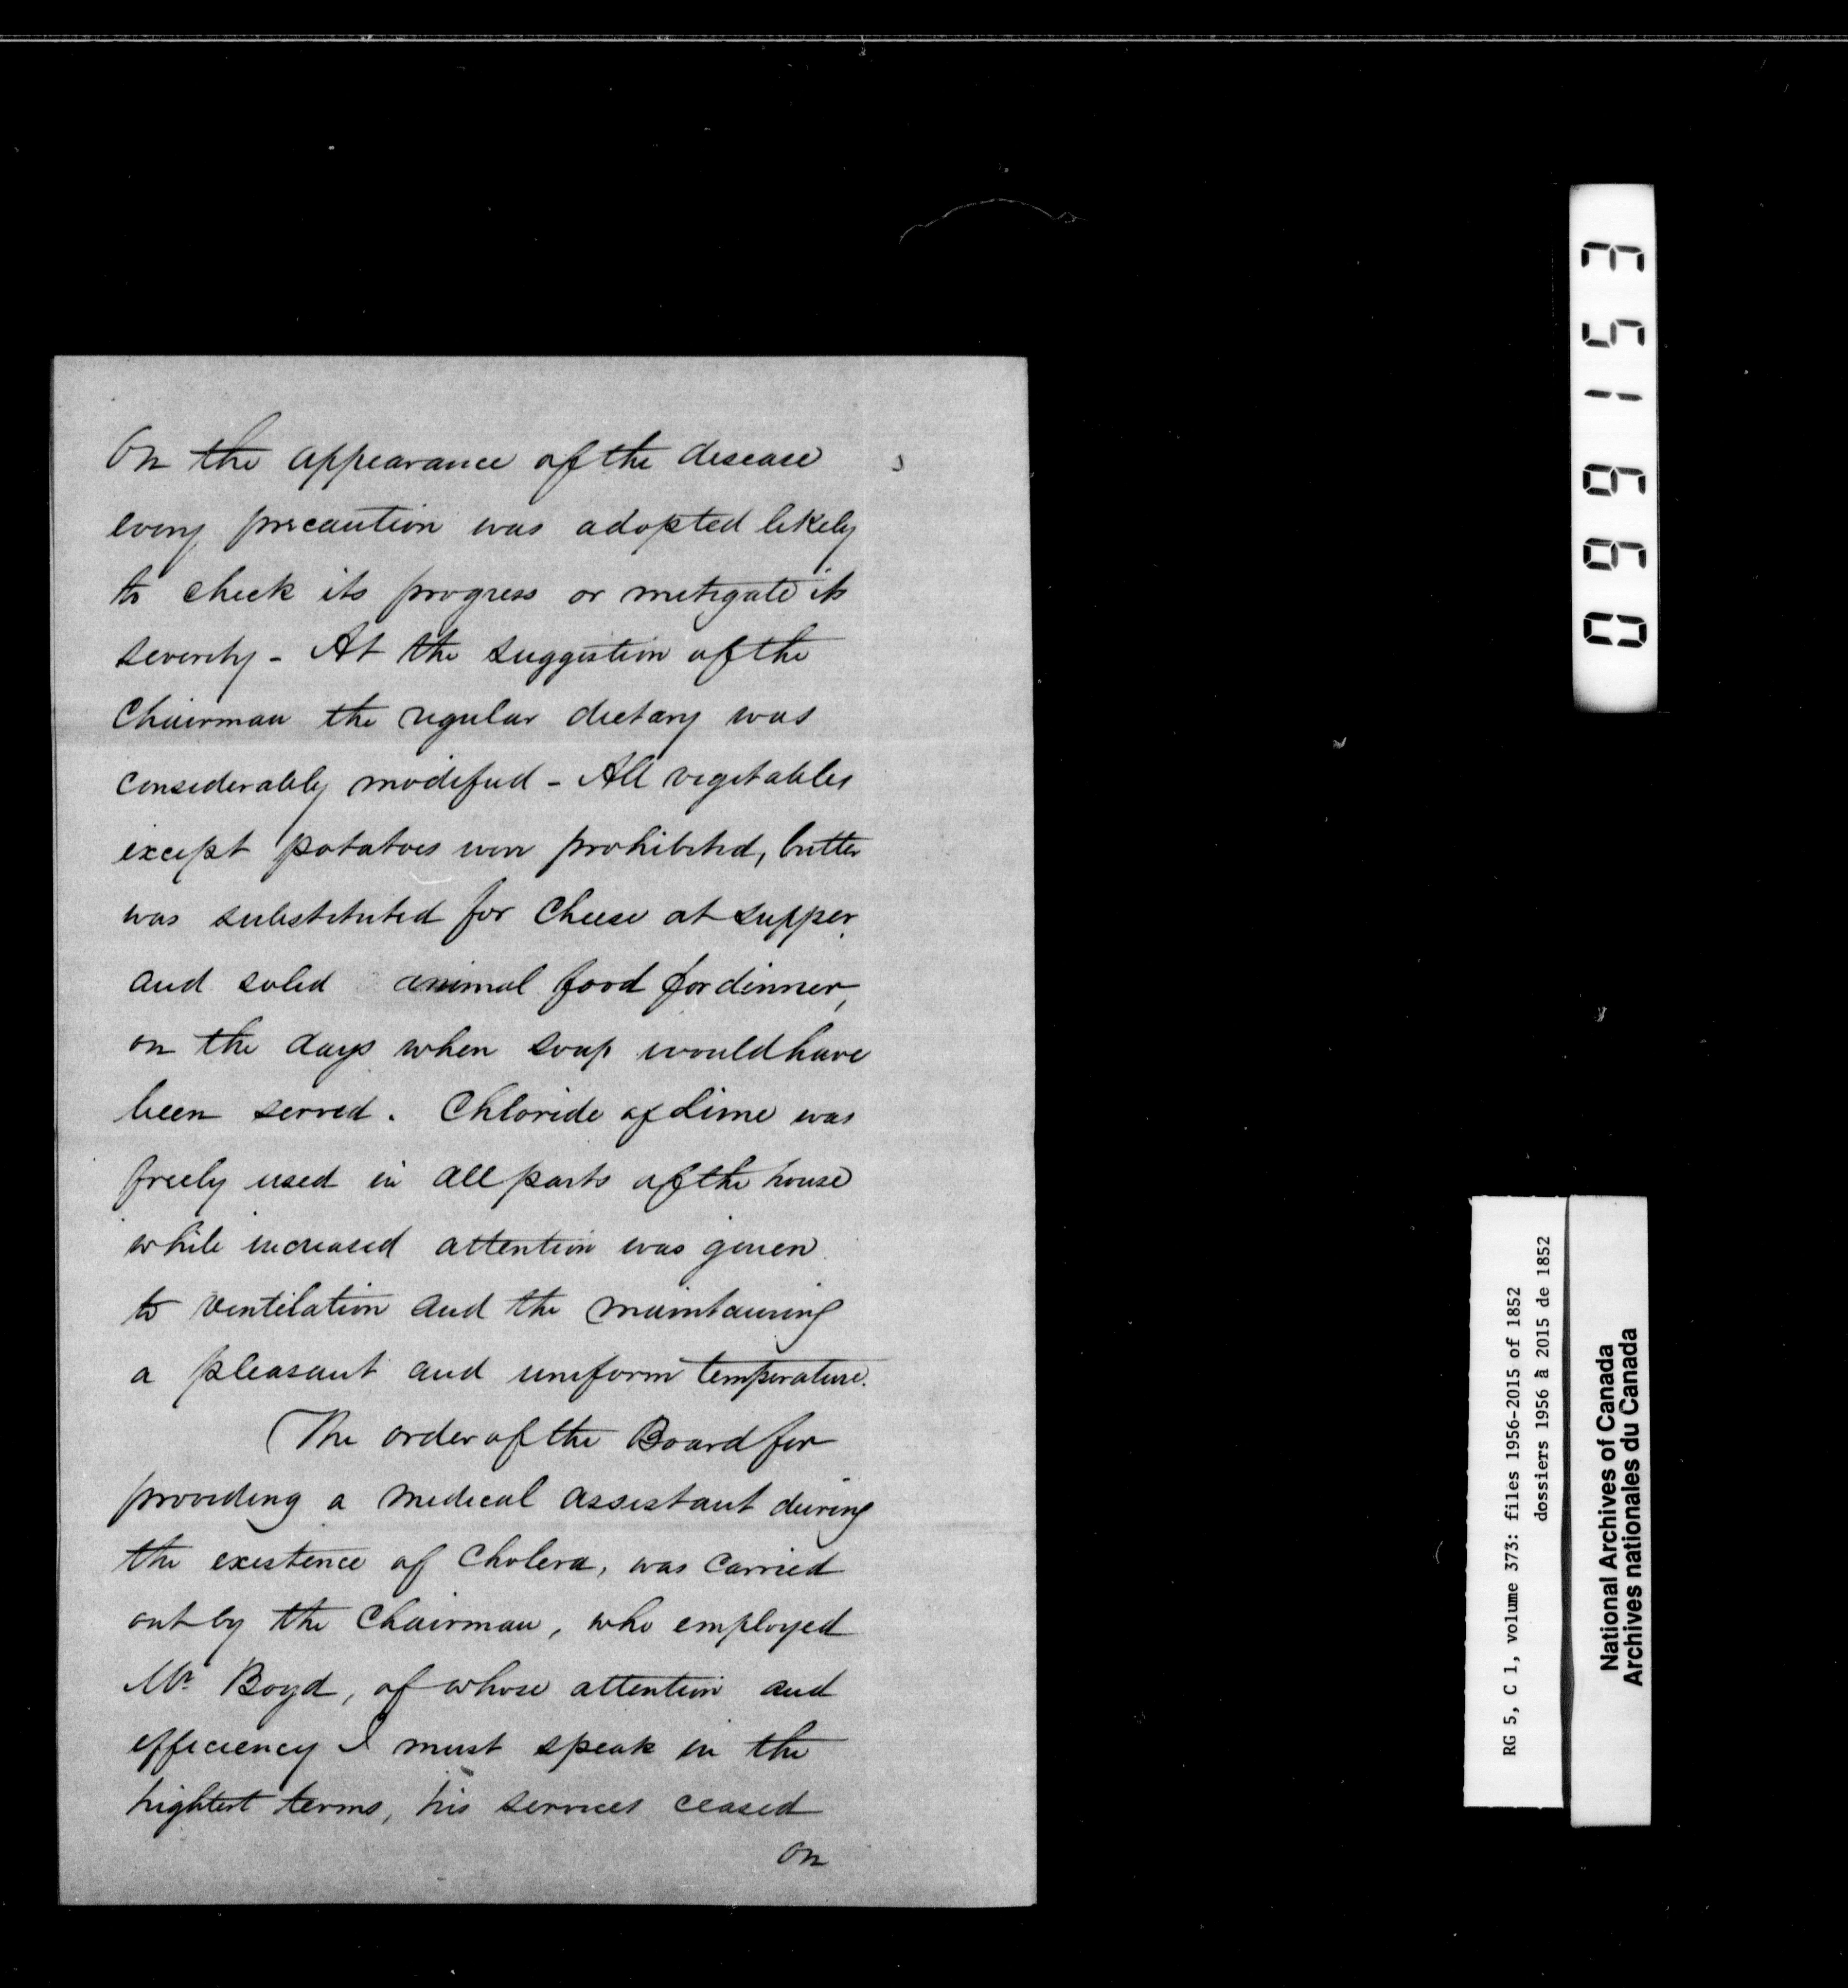 On the appearance of the disease
every precaution was adopted likely
to check its progress or mitigate its
severity - At the suggestion of the
Chairman the regular dietary was
considerably modified - All vegetables
except potatoes were prohibited, butter
was substituted for Cheese at supper
and solid animal food for dinner,
on the days when soup would have
been served. Chloride of Lime was
freely used in all parts of the house
while increased attention was given
to ventilation and the maintaining
a pleasant and uniform temperature.
The order of the Board for
providing a medical assistant during
the existence of Cholera, was carried
out by the Chairman, who employed
Mr Boyd, of whose attention and
efficiency I must speak in the
highest terms, his services ceased
on
099153
RG 5, C 1, volume 373: files 1956-2015 of 1852
dossiers 1956 à 2015 de 1852
National Archives of Canada
Archives nationales du Canada